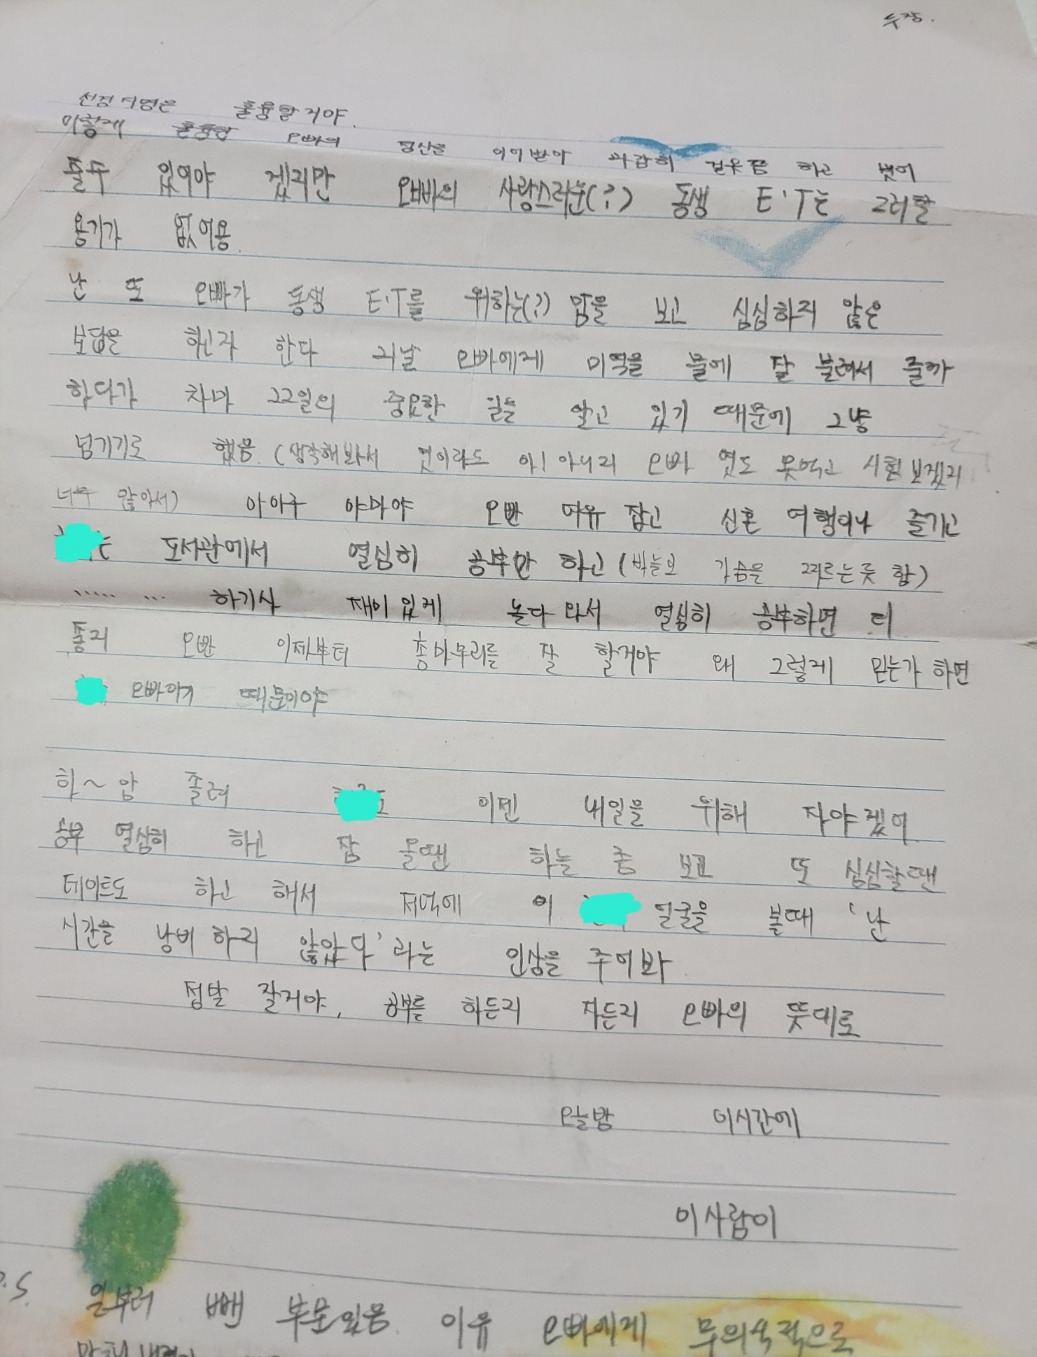 두장.
훌륭할거야.
이렇게 훌륭한 오빠의 정신을 이어받아 과감히 걸음을 하고 벗어
줄수 있어야 겠지만 오빠의 사랑스러운(?) 동생 E·T는 그러할
용기가 없어용.
난 또 오빠가 동생 E·T를 위하는(?) 맘을 보고 심심하지 않은
보답은 하고자 한다 그날 오빠에게 미역을 물에 잘 불려서 줄까
하다가 차마 22일의 중요한 일을 알고 있기 때문에 그냥
넘기기로 했음. (생각해봐서 엿이라도 아! 아니지 오빠 엿도 못먹고 시험보겠지
너무 많아서) 아이구 야마야 오빤 여유 잡고 신혼 여행이나 즐기고
도서관에서 열심히 공부만 하고 (바늘로 가슴을 찌르는듯 함)
..... ... 하기사 재미있게 놀다 와서 열심히 공부하면 더
좋지 오빤 이제부터 총마무리를 잘 할거야 왜 그렇게 믿는가 하면
오빠이기 때문이야
하~암 졸려 이젠 내일을 위해 자야겠어
공부 열심히 하고 잠 올땐 하늘 좀 보고 또 심심할땐
데이트도 하고 해서 저녁에 이 얼굴을 볼때 '난
시간을 낭비 하지 않았다'라는 인상을 주어봐
정말 잘거야, 공부를 하든지 자든지 오빠의 뜻대로
오늘밤 이시간에
이사람이
P.S. 일부러 뺀 부분있음. 이유 오빠에게 무의식적으로